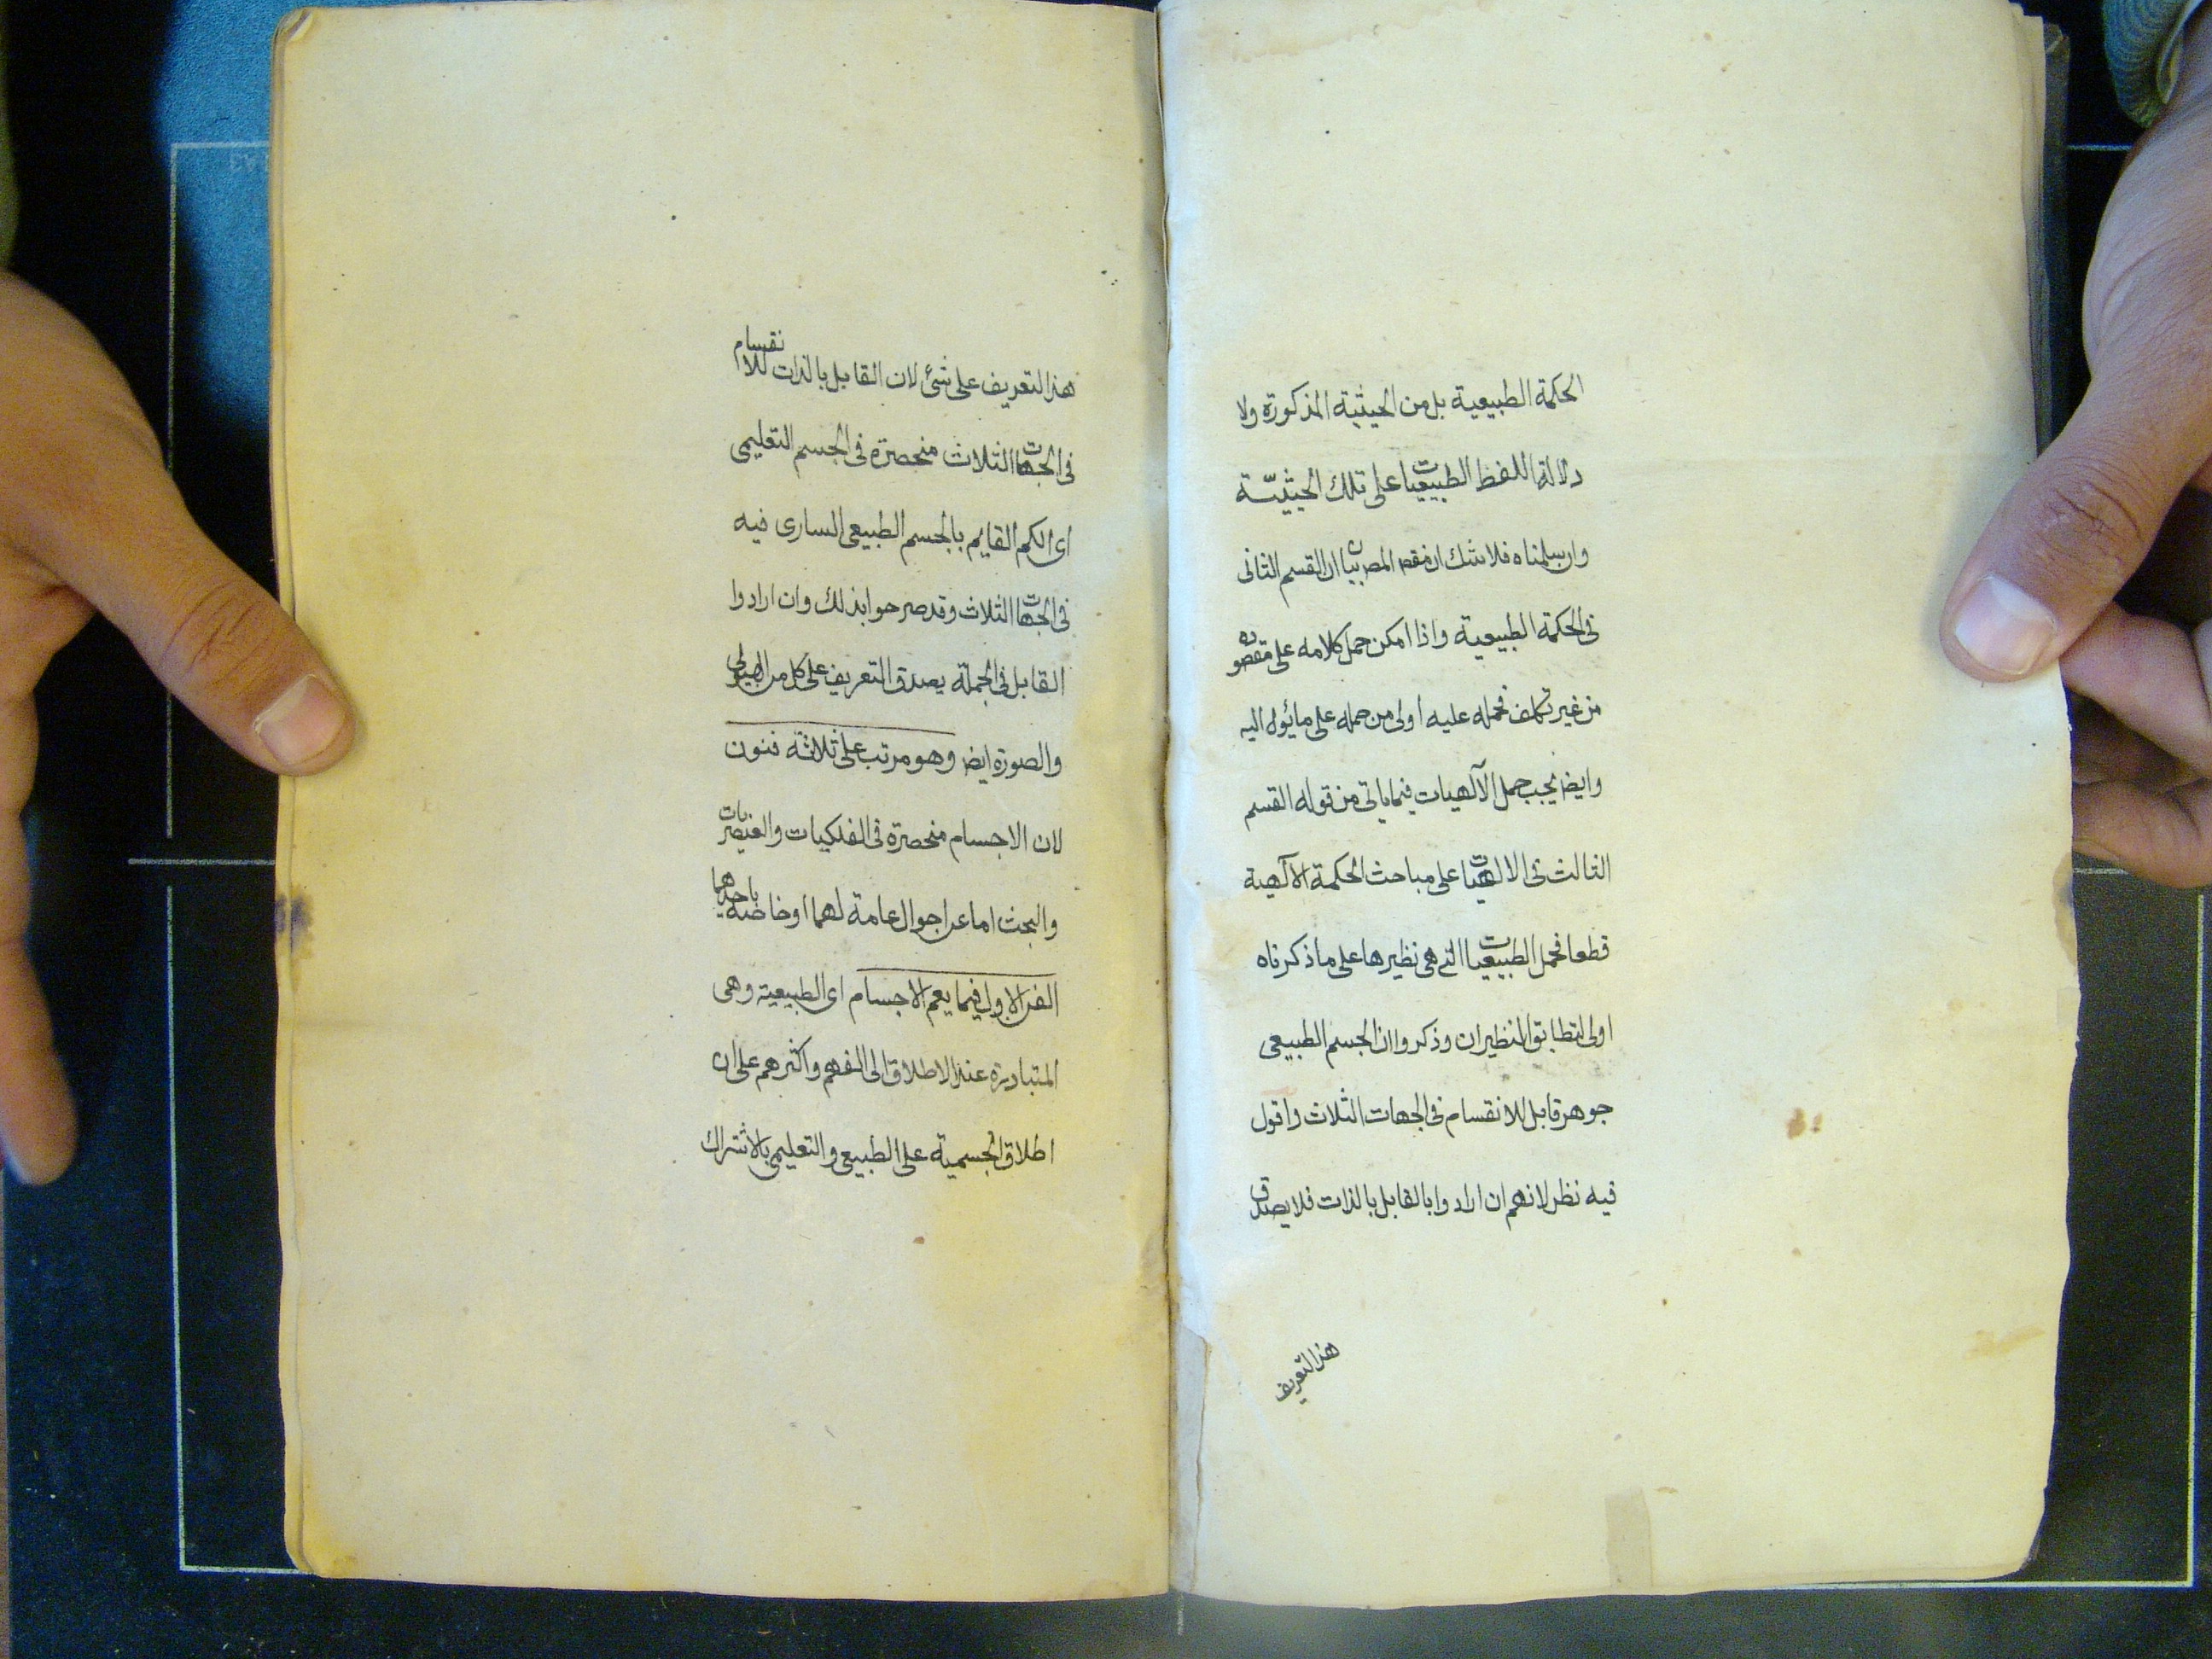 الحكمة الطبيعية بل من الحيثية المذكورة ولا
دلالة للفظ الطبيعيات على تلك الحيثيّة
وان سلمناه فلا شك ان مقصد المص بيان ان القسم الثانى
فى الحكمة الطبيعية واذا امكن حمل كلامه على مقصوده
من غير تكلف فحمله عليه اولى من حمله على مايئول اليه
وايض يجب حمل الآلهيات فيما ياتى من قوله القسم
الثالث فى الالهيات على مباحث الحكمة الآلهية
قطعا فحمل الطبيعيات التى هى نظيرها على ما ذكرناه
اولى لتطابق النظيران وذكروا ان الجسم الطبيعى
جوهر قابل للانقسام فى الجهات الثلاث واقول
فيه نظر لانهم ان ارادوا بالقابل بالذات فلا يصدق
هذا التعريف
هذا التعريف على شئ لان القابل بالذات للانقسام
فى الجهات الثلاث منحصرة فى الجسم التعليمى
اى الكم القايم بالجسم الطبيعى السارى فيه
فى الجهات الثلاث وقد صرحوا بذلك وان ارادوا
القابل فى الجملة يصدق التعريف على كل من الهيولى
والصورة ايض وهو مرتب على ثلاثة فنون
لان الاجسام منحصرة فى الفلكيات والعنصريات
والبحث اما عن احوال عامة لهما او خاصة باحدهما
الفن الاول فيما يعم الاجسام اى الطبيعية وهى
المتبادرة عند الاطلاق الى الفهم واكثرهم على ان
اطلاق الجسمية على الطبيعى والتعليمى بالاشتراك